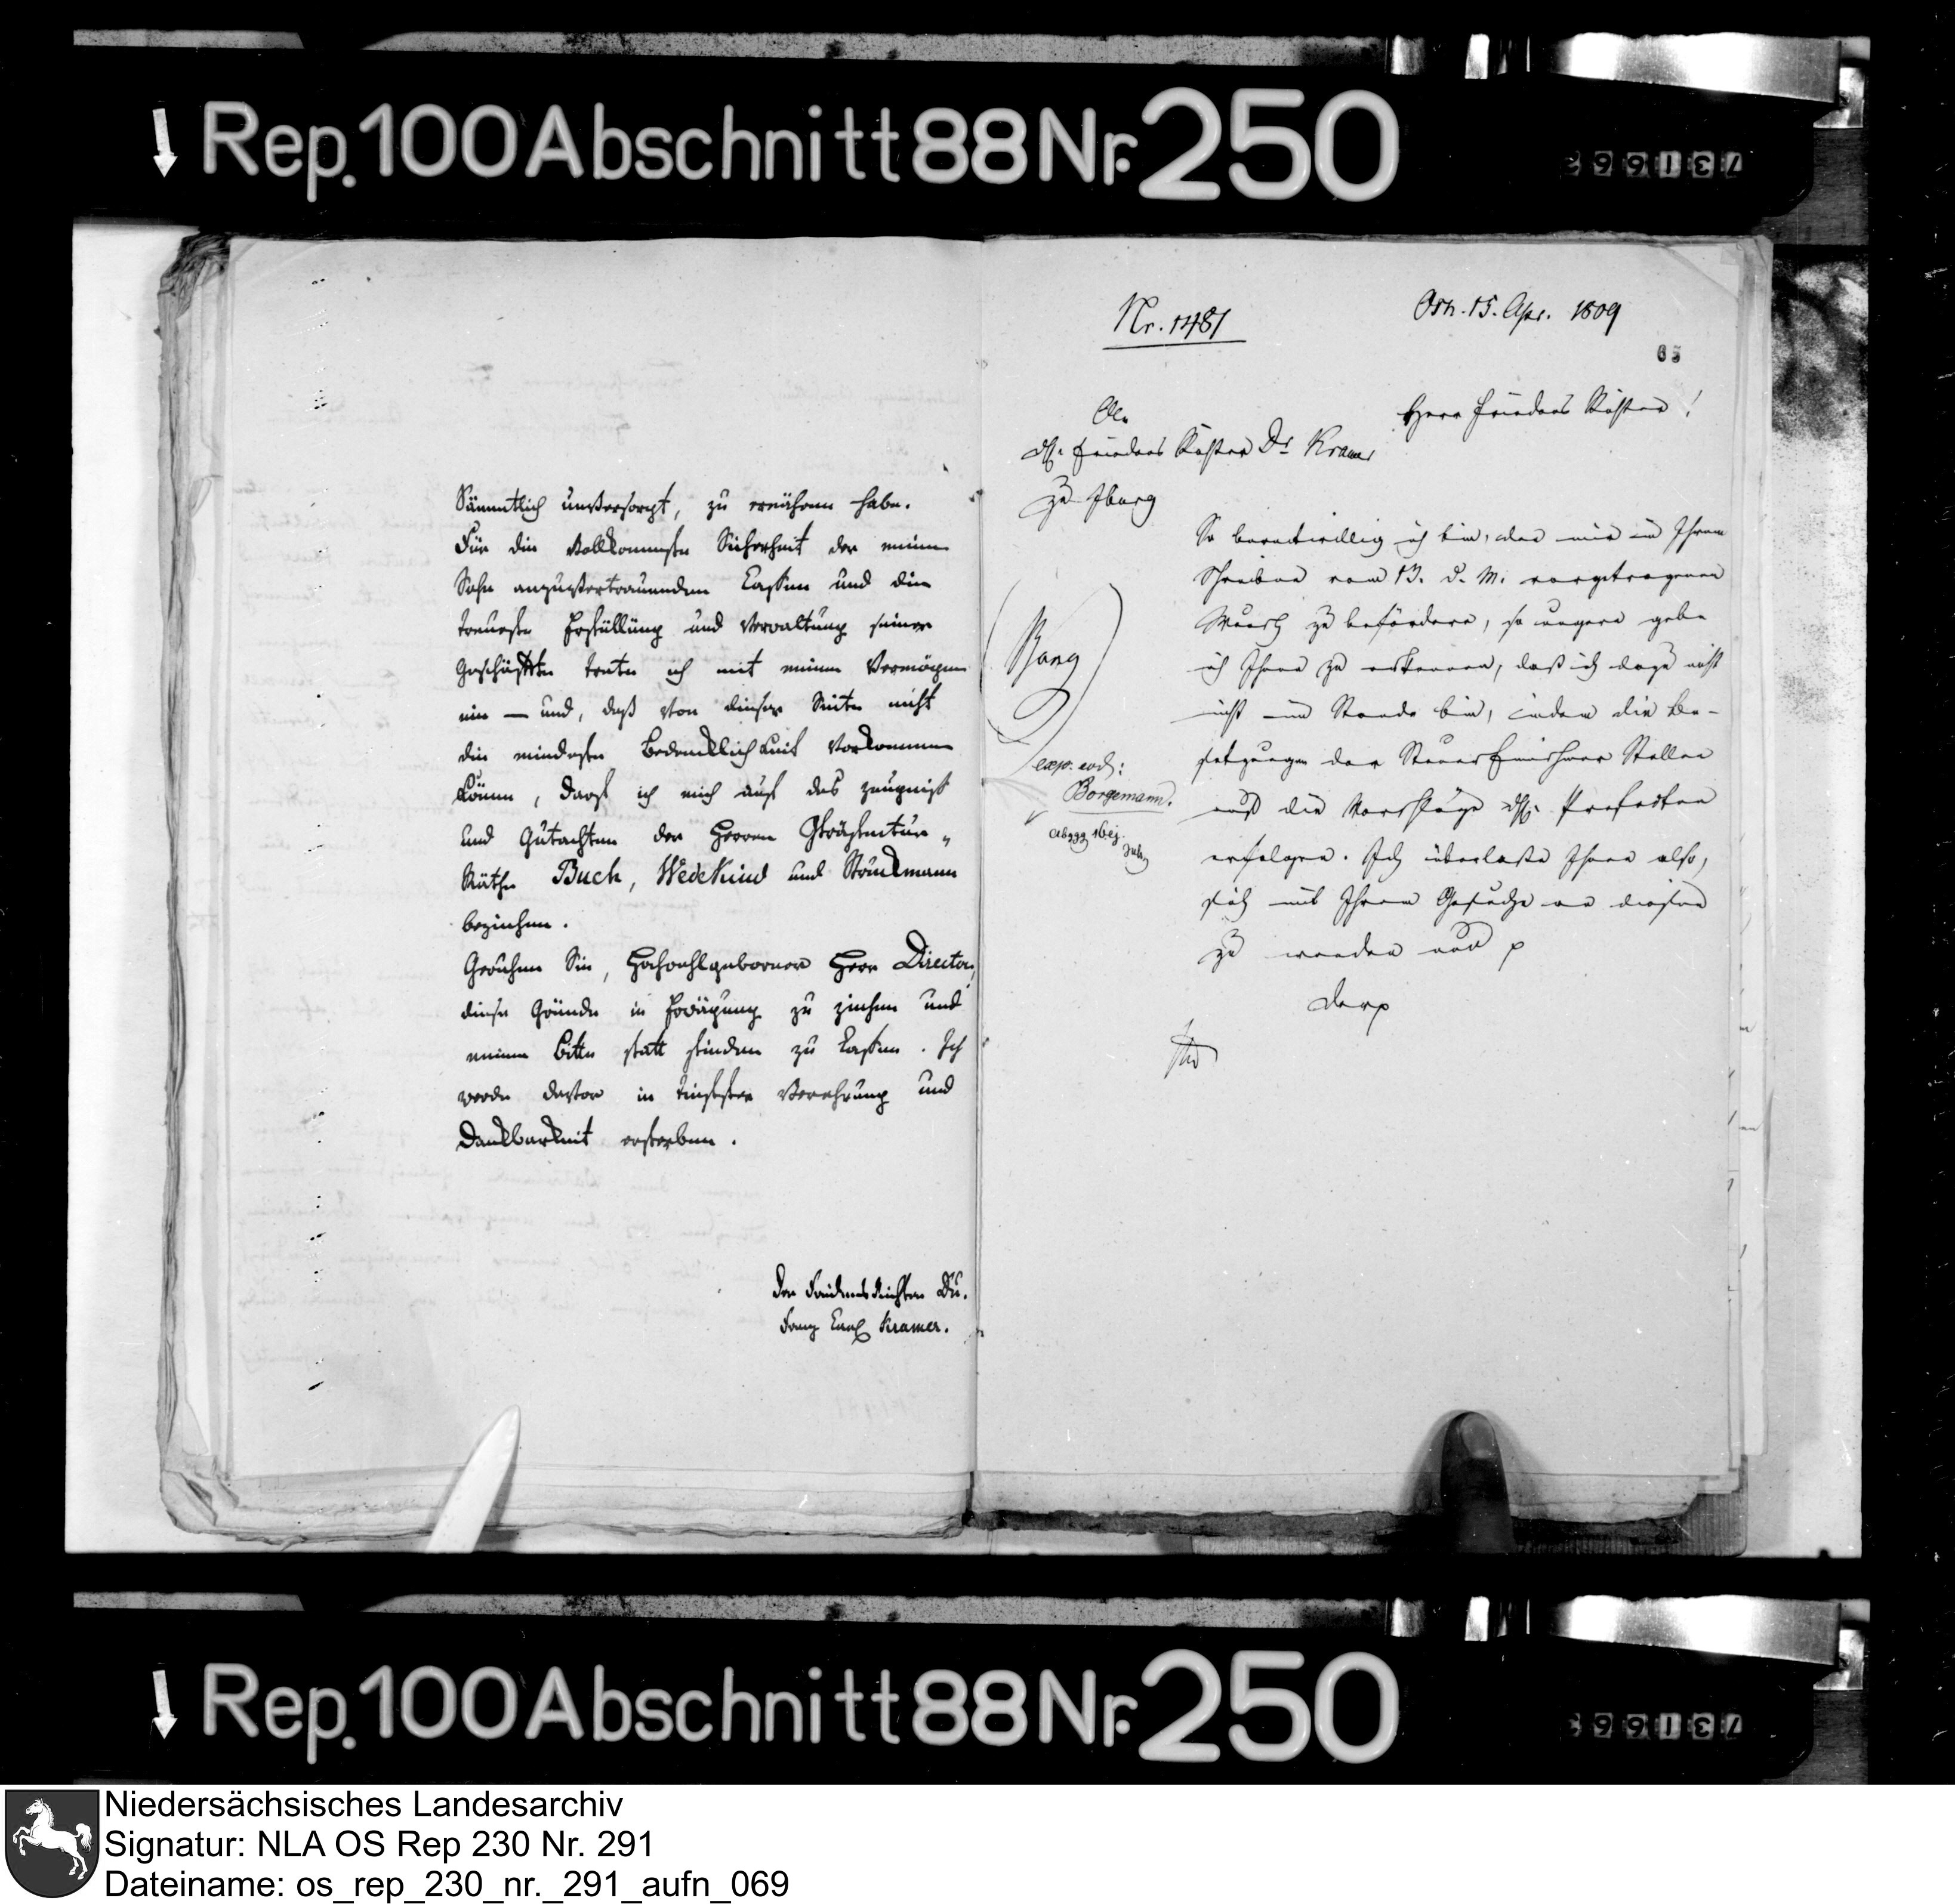 Rep. 100 Abschnitt 88 Nr. 250
731662
Sämmtlich unversorgt, zu ernähren habe.
Für die vollkommste Sicherheit der meinem
Sohn anzuvertrauenden Cassen und die
treueste Erfüllung und Verwaltung seiner
Geschäfte trete ich mit meinem Vermögen
ein — und, daß von dieser Seite nicht
die mindeste Bedenklichkeit vorkommen
könne, darf ich mich auf das Zeugniß
und Gutachten der Herren Präfectur-
Räthe Buch, Wedekind und Stüudkmann
beziehen.
Geruhen Sie, Hochwohlgeborner Herr Director,
diese Gründe in Erwägung zu ziehen und
meine Bitte statt finden zu lassen. Ich
werde davor in tiefster Verehrung und
Dankbarkeit ersterben.
Der Friedensrichter Du.
Franz Kramer.
Nr. 1481
Osn. 15. Apr. 1809
65
An
Friedens Richter Dr Kramer
zu Iburg
Herr Friedens Richter!
So bereitwillig ich bin, den mir in Ihrem
Schreiben vom 13. d. M. vorgetragenen
Wunsch zu befördern, so ungern gebe
ich Ihnen zu erkennen, daß ich dazu nicht
nicht im Stande bin, indem die Be-
setzungen der Steuer Einnehmer Stellen
auf die Vorschläge Präfecten
erfolgen. Ich überlasse Ihnen also,
sich mit Ihrem Gesuche an diesen
zu wenden und p
exp. eod:
Borgemann.
Rep. 100 Abschnitt 88 Nr. 250
731663
Niedersächsisches Landesarchiv
Signatur: NLA OS Rep 230 Nr. 291
Dateiname: os_rep_230_nr._291_aufn_069